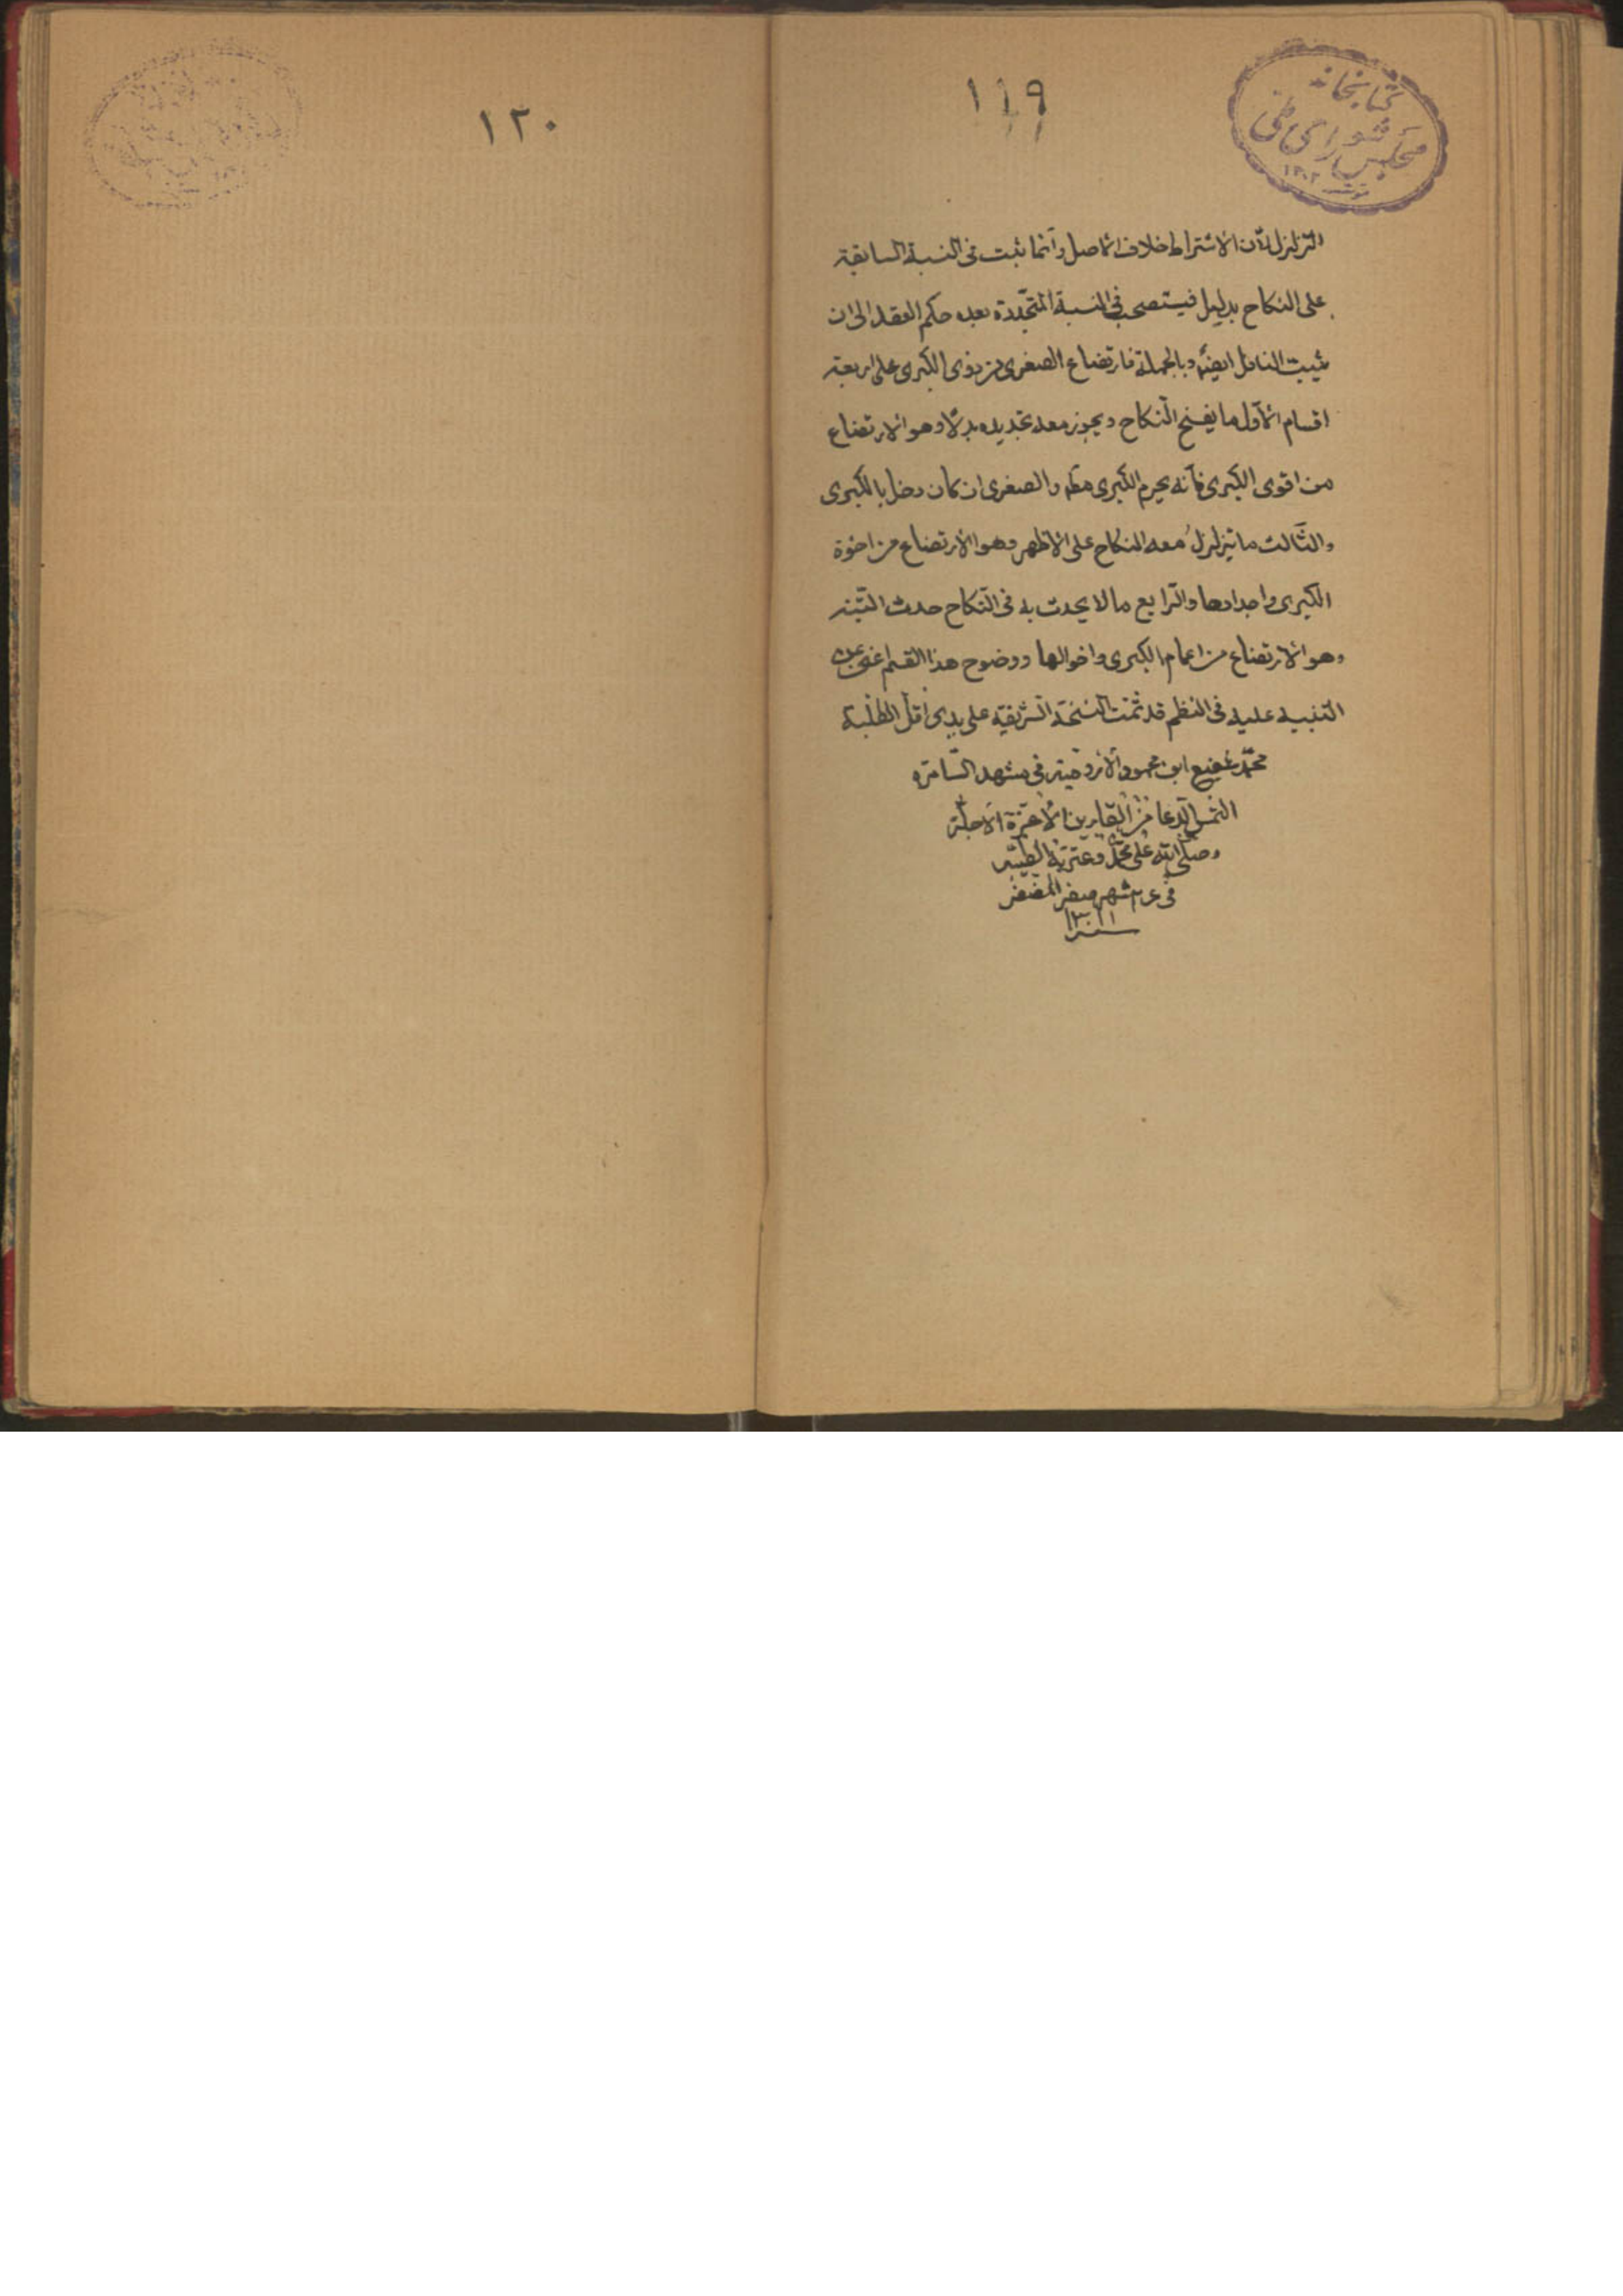 ١١٩
كتابخانه
مجلس شورای ملی
١٣٠٢
التزلزل لان الاشتراط خلاف الاصل وانما يثبت فى النسبة السابقة
على النكاح بدليل فيستصحب فى النسبة المتجددة بعده حكم العقد الى ان
يثبت الناقل ايضا وبالجملة فارتضاع الصغرى من ذوى الكبرى على اربعة
اقسام الاول ما يفسخ النكاح ويجوز معه تجديده بدلا وهو الارتضاع
من اقوى الكبرى فانه يحرم الكبرى مطم والصغرى ان كان دخل بالكبرى
والثالث ما يتزلزل معه النكاح على الاظهر وهو الارتضاع من اخوة
الكبرى واجدادها والرابع ما لا يحدث به فى النكاح حدث البتنه
وهو الارتضاع من اعمام الكبرى واخوالها ووضوح هذا القسم اغنى عن
التنبيه عليه فى النظم قد تمت النسخة الشريفة على يدى اقل الطلبة
محمد شفيع ابن محمود فى مشهد السامره
التمس الدعا من القارين الاعزة الاجلة
وصلى الله على محمد وعترته
فى شهر صفر المظفر
١٢٠